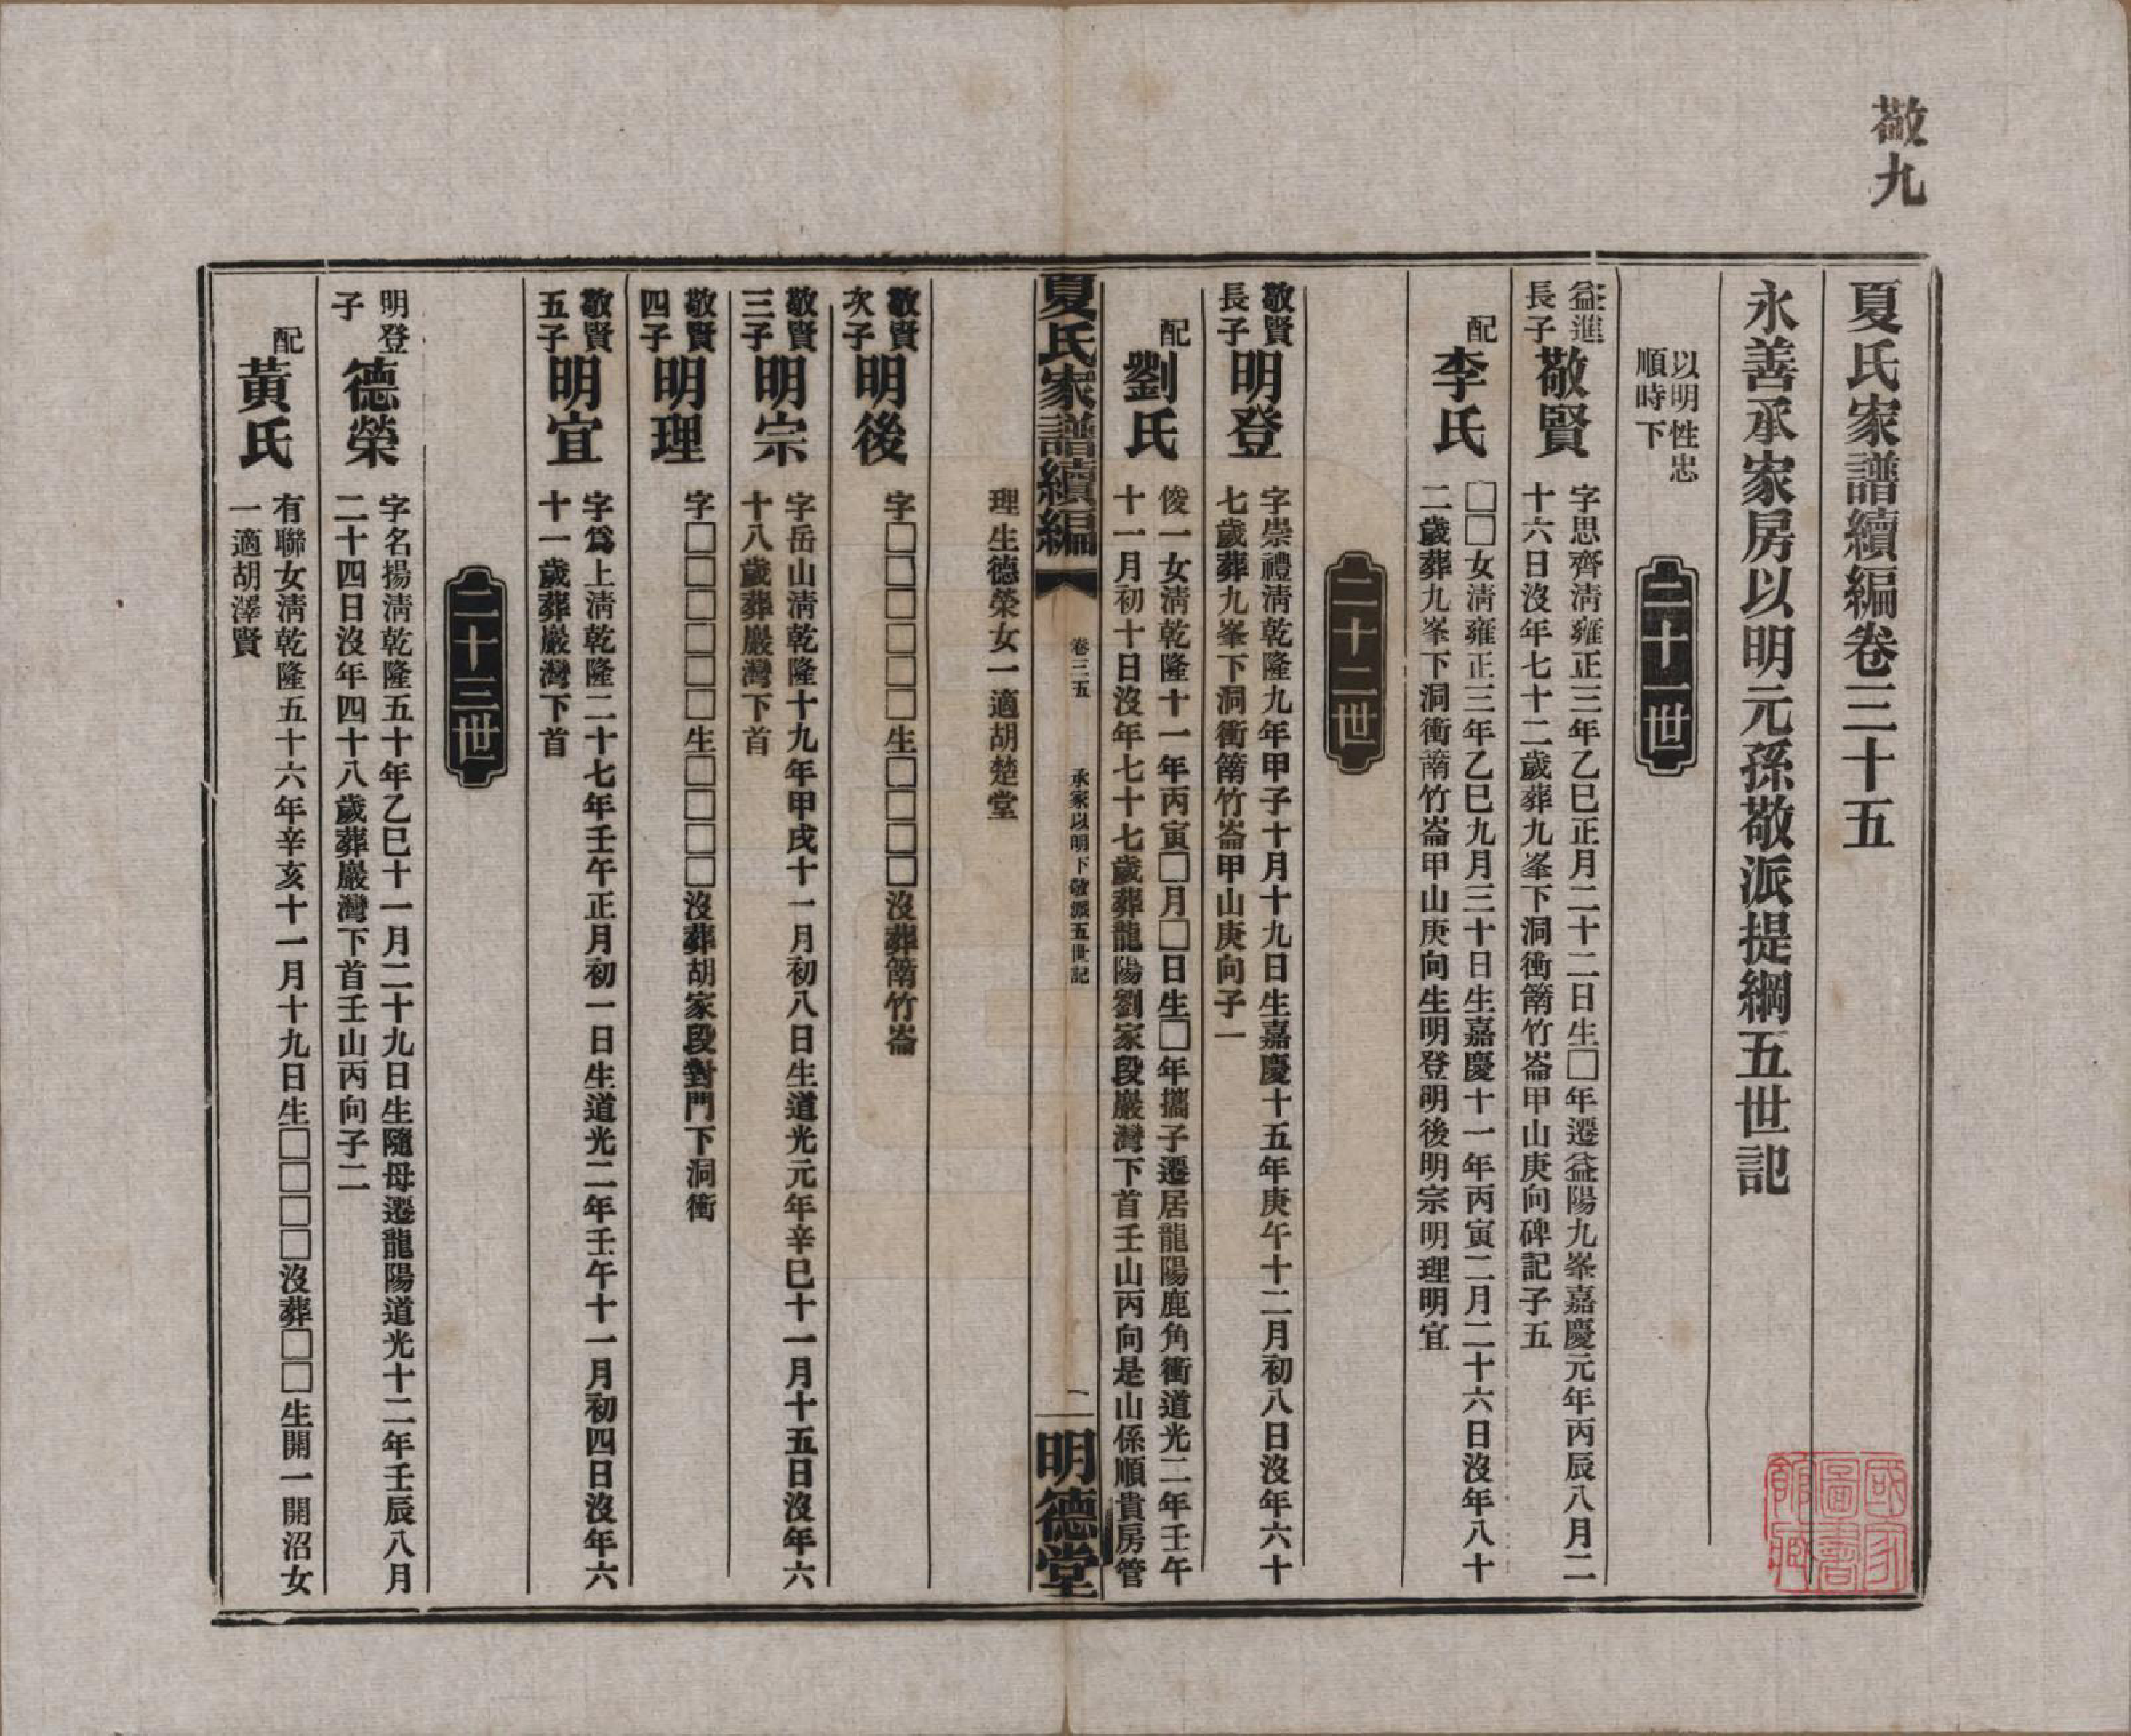 敬九
夏氏家譜續編卷三十五
永善承家房以明元孫敬派提綱五世記
以明性忠
順時下
二十一世
益進
長子
敬賢
字思齊淸雍正三年乙巳正月二十二日生□年遷益陽九峯嘉慶元年丙辰八月二
十六日沒年七十二歲葬九峯下洞衝篛竹崙甲山庚向碑記子五
配
李氏
□□女淸雍正三年乙巳九月三十日生嘉慶十一年丙寅二月二十六日沒年八十
二歲葬九峯下洞衝篛竹崙甲山庚向生明登明後明宗明理明宜
二十二世
敬賢
長子
明登
字崇禮淸乾隆九年甲子十月十九日生嘉慶十五年庚午十二月初八日沒年六十
七歲葬九峯下洞衝篛竹崙甲山庚向子一
配
劉氏
俊一女淸乾隆十一年丙寅□月□日生□年攜子遷居龍陽鹿角衝道光二年壬午
十一月初十日沒年七十七歲葬龍陽劉家段巖灣下首壬山丙向是山係順貴房管
夏氏家譜續編
卷三五
承家以明下敬派五世記
一
明德堂
理生德榮女一適胡楚堂
敬賢
次子
明後
字□□□□□□生□□□□沒葬篛竹崙
敬賢
三子
明宗
字岳山淸乾隆十九年甲戌十一月初八日生道光元年辛巳十一月十五日沒年六
十八歲葬巖灣下首
敬賢
四子
明理
字□□□□□□生□□□□沒葬胡家段對門下洞衝
敬賢
五子
明宜
字爲上淸乾隆二十七年壬午正月初一日生道光二年壬午十一月初四日沒年六
十一歲葬巖灣下首
二十三世
明登
子
德榮
字名揚淸乾隆五十年乙巳十一月二十九日生隨母遷龍陽道光十二年壬辰八月
二十四日沒年四十八歲葬巖灣下首壬山丙向子二
配
黃氏
有聯女淸乾隆五十六年辛亥十一月十九日生□□□□沒葬□□生開一開沼女
一適胡澤賢
國家圖書館藏